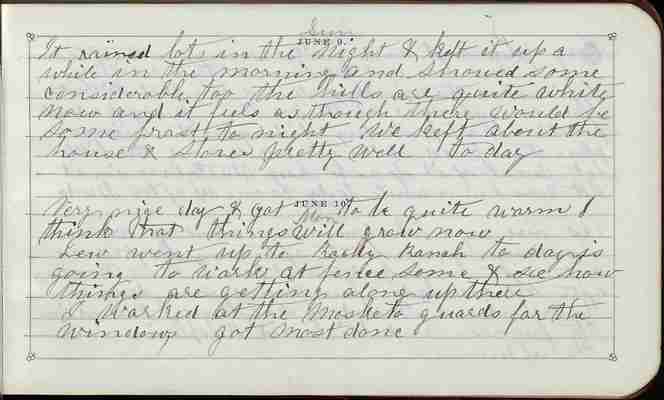 Sun
JUNE 9.
It rained lots in the Night & kept it up a
while in the morning and snowed some
considerable too the hills are quite white
now and it feels as though there would be
some frost to night We kept about the
house & stove pretty well to day
JUNE 10.
Very nice day & got to be quite warm I
Mon
think that things will grow now
Lew went up to Rocky Ranch to day is
going to work at fence some & see how
things are getting along up there
I worked at the Mosketo guards for the
windows got most done